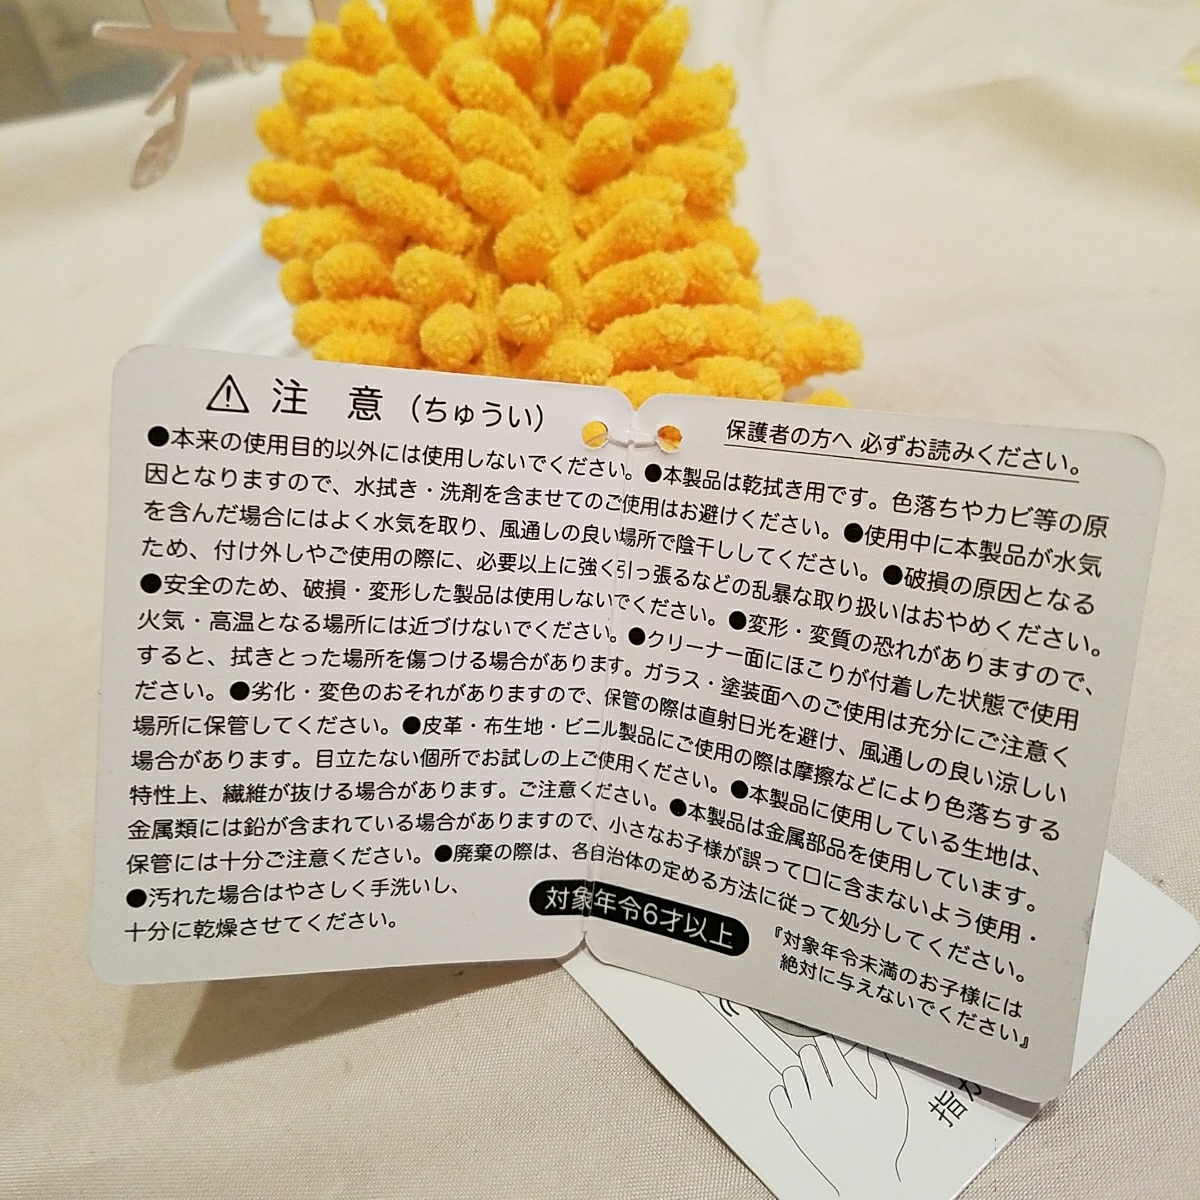 ⚠注意（ちゅうい）
保護者の方へ 必ずお読みください。
●本来の使用目的以外には使用しないでください。●本製品は乾拭き用です。色落ちやカビ等の原
因となりますので、水拭き・洗剤を含ませてのご使用はお避けください。●使用中に本製品が水気
を含んだ場合にはよく水気を取り、風通しの良い場所で陰干ししてください。●破損の原因となる
ため、付け外しやご使用の際に、必要以上に強く引っ張るなどの乱暴な取り扱いはおやめください。
●安全のため、破損・変形した製品は使用しないでください。●変形・変質の恐れがありますので、
火気・高温となる場所には近づけないでください。●クリーナー面にほこりが付着した状態で使用
すると、拭きとった場所を傷つける場合があります。ガラス・塗装面へのご使用は充分にご注意く
ださい。●劣化・変色のおそれがありますので、保管の際は直射日光を避け、風通しの良い涼しい
場所に保管してください。●皮革・布生地・ビニル製品にご使用の際は摩擦などにより色落ちする
場合があります。目立たない個所でお試しの上ご使用ください。●本製品に使用している生地は、
特性上、繊維が抜ける場合があります。ご注意ください。●本製品は金属部品を使用しています。
金属類には鉛が含まれている場合がありますので、小さなお子様が誤って口に含まないよう使用・
保管には十分ご注意ください。●廃棄の際は、各自治体の定める方法に従って処分してください。
●汚れた場合はやさしく手洗いし、
十分に乾燥させてください。
対象年令6才以上
『対象年令未満のお子様には
絶対に与えないでください』
指が